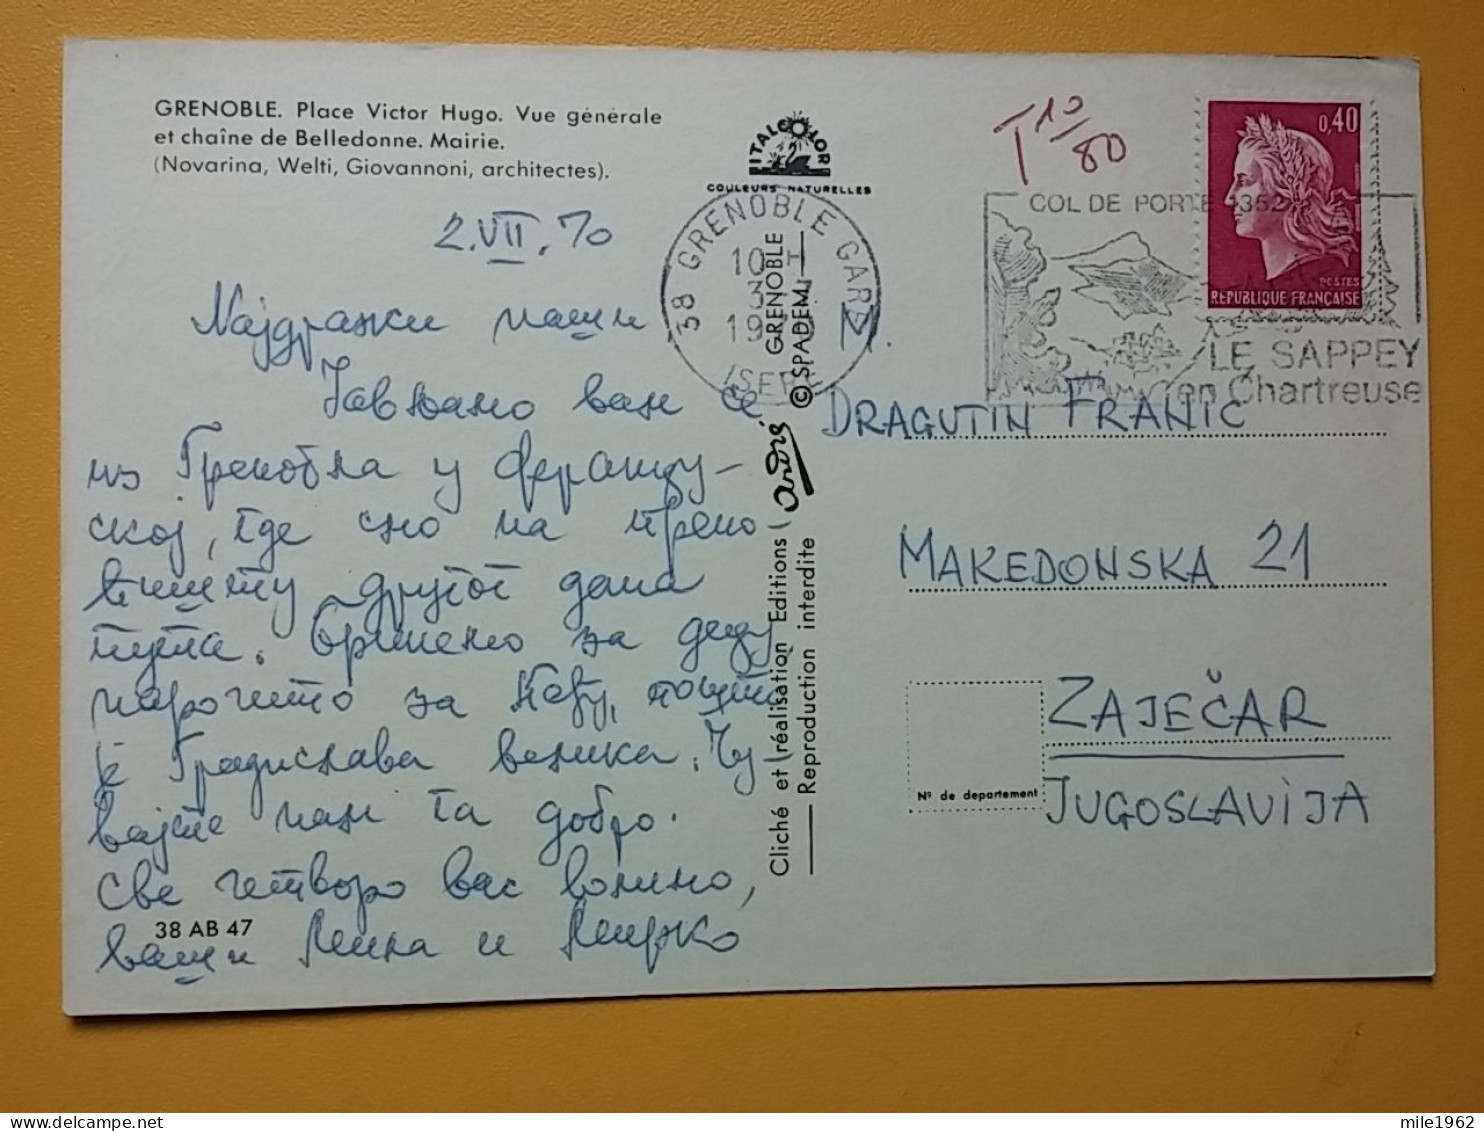 GRENOBLE. Place Victor Hugo. Vue générale
et chaîne de Belledonne. Mairie.
(Novarina, Welti, Giovannoni, architectes).
ITALCOLOR
COULEURS NATURELLES
T 10/80
0,40
POSTES
REPUBLIQUE FRANÇAISE
COL DE PORTE 1352
LE SAPPEY
en Chartreuse
38 GRENOBLE GARE
ISERE
2.VII.70
Најдражи наши
Јављамо вам се
из Гренобла у Францу-
ској, где смо на прено
ћишту другог дана
пута. Бринемо за деду
нарочито за
Градислава велика. Чу-
вајте нам га добро.
Све четворо вас волимо,
ваши и Мирко
38 AB 47
Cliché et réalisation Editions André GRENOBLE
Reproduction interdite © SPADEM
M.
DRAGUTIN FRANIC
MAKEDONSKA 21
ZAJEČAR
JUGOSLAVIJA
Nº de departement
mile1962